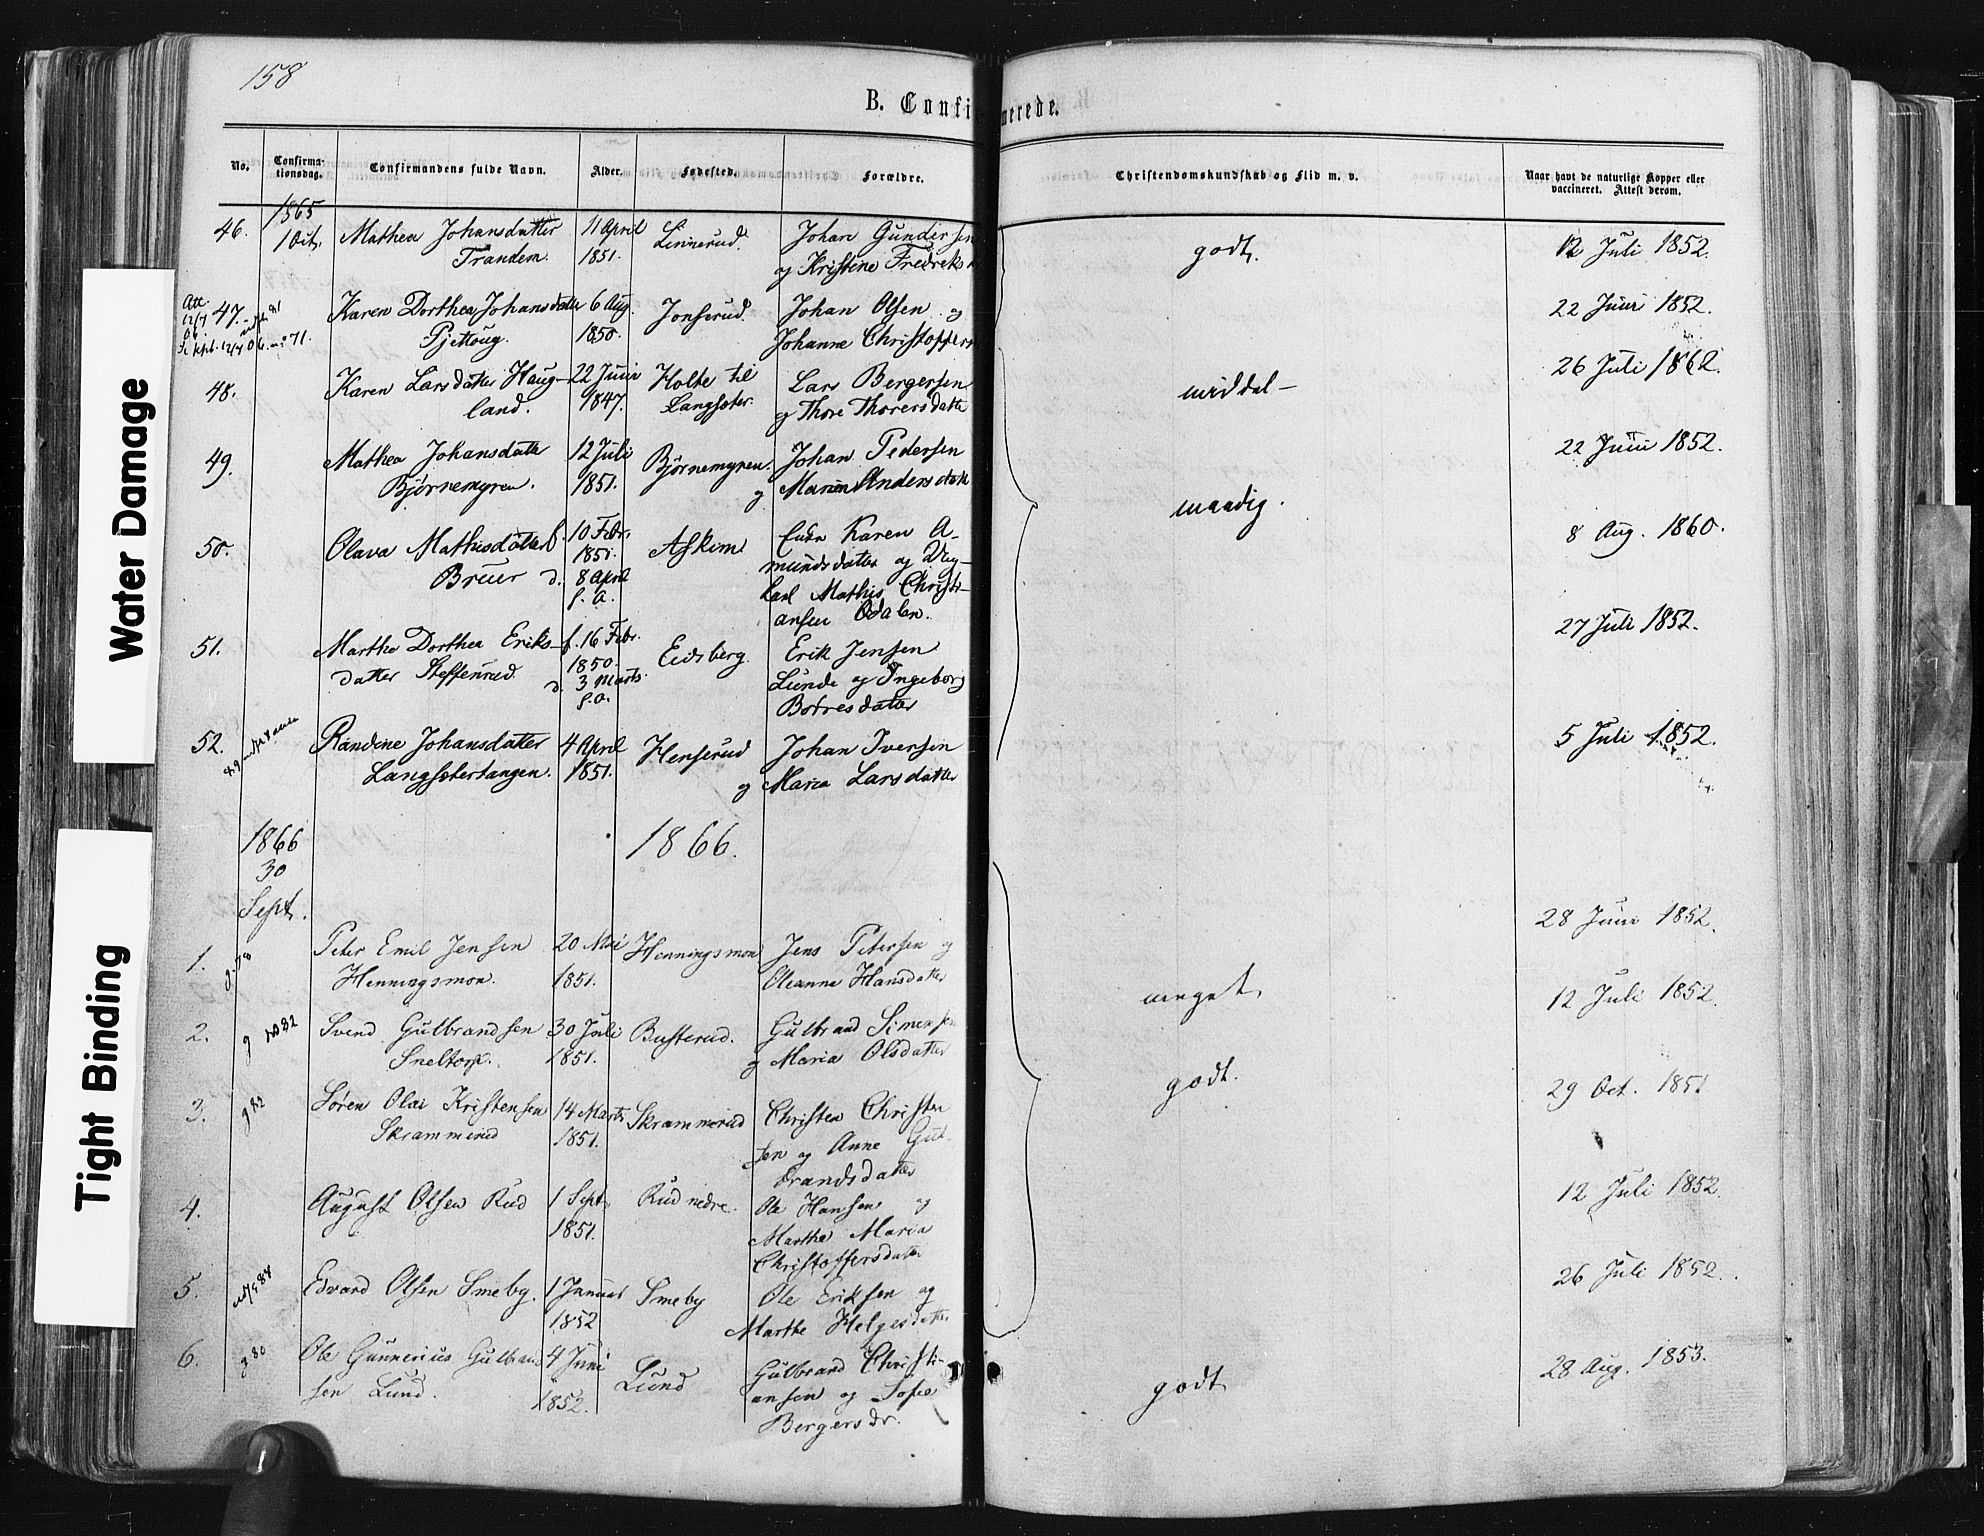 158
B. Confi
merede.
No.
Confirma-
tionsdag.
Confirmandens fulde Navn.
Alder.
Fødested.
Forældre.
Christendomskundskab og Flid m. v.
Naar havt de naturlige Kopper eller
vaccineret. Attest derom.
1865
46. 1 Oct. Mathea Johansdatter 11 April Linnerud. Johan Gundersen godt. 12 Juli 1852.
Trandem 1851. og Kristine Fredriks
47. Karen Dorthea Johansdatter 6 Aug. Jonserud. Johan Olsen og 22 Juni 1852.
Pjettoug. 1850. Johanne Christoffers
48. Karen Larsdatter Haug- 22 Juni Holte til Lars Bergersen middel- 26 Juli 1862.
land. 1847. Langsæter. og Thore Thorersdatte
49. Mathea Johansdatte 12 Juli Bjørnemyren. Johan Pedersen 22 Juni 1852.
Bjørnemyren. 1851. og Maren Andersdatte
maadig.
50. Olava Mathisdatter f. 10 Febr. Askim Enke Karen A- 8 Aug. 1860.
Bruer 1851. mundsdatter og Ung-
d. 8 April karl Mathis Christi-
s. A. ansen Odalen.
51. Marthe Dorthea Eriks- f. 16 Febr. Eidsberg. Erik Jensen 27 Juli 1852.
datter Steffenrud. 1850. Lunde og Ingeborg
d. 3 Marts. Børresdatter
s. a.
52. Randine Johansdatter 4 April Henserud Johan Iversen 5 Juli 1852.
Langsætertangen. 1851. og Maria Larsdatter
1866
30
Sept.
1866.
1. Peter Emil Jensen 20 Mai Henningsmon Jens Petersen og 28 Juni 1852.
Henningsmon. 1851. Oleanne Hansdatter
meget
2. Svend Gulbrandsen 30 Juli Busterud. Gulbrand Simensen 12 Juli 1852.
Sneltorp. 1851. og Maria Olsdatter
godt.
3. Søren Olai Kristensen 14 Marts Skrammerud Christen Christen 29 Oct. 1851
Skrammerud 1851. sen og Anne Gul-
brandsdatter
4. August Olsen Rud 1 Sept. Rud nedre. Ole Hansen og 12 Juli 1852.
1851. Marthe Maria
Christoffersdatter
5. Edvard Olsen Smeby. 1 Januar Smeby Ole Eriksen og 26 Juli 1852.
1852 Marthe Helgesdatter
6. Ole Gunnerius Gulbrand 4 Juni Lund Gulbrand Christi- 28 Aug. 1853.
sen Lund. 1852. ansen og Sofie godt
Bergersdr.
Water Damage
Tight Binding